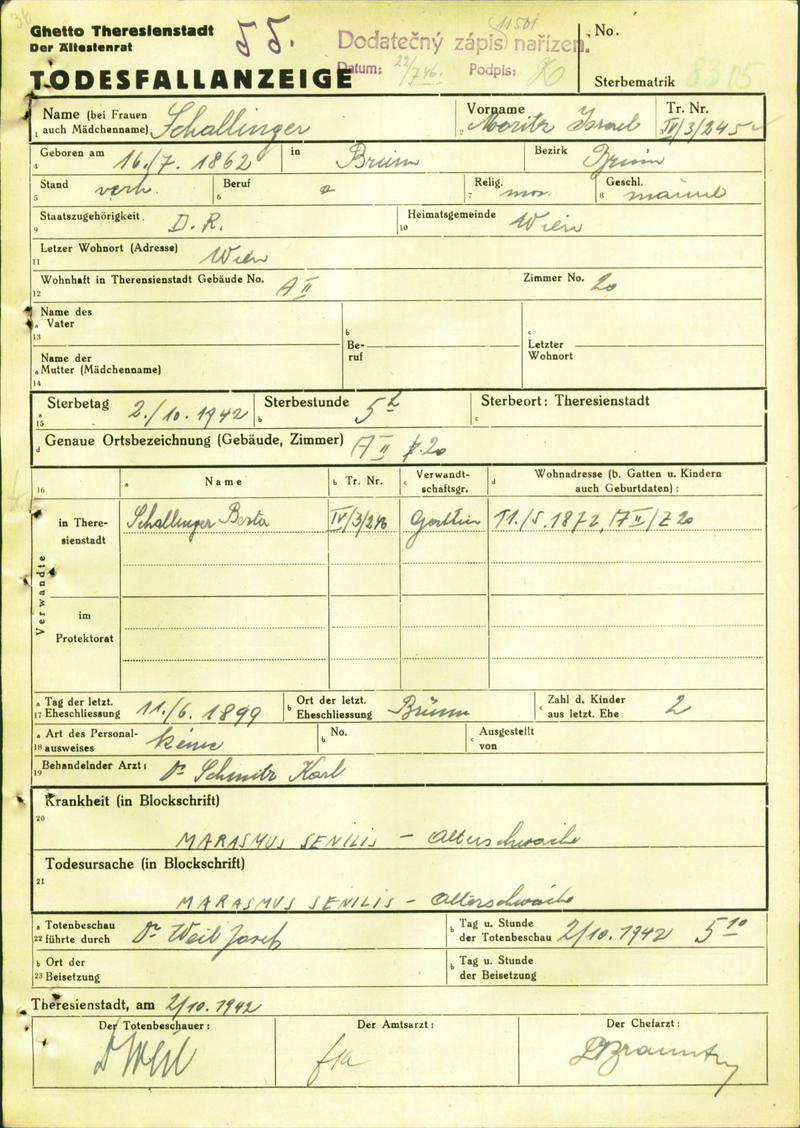 Ghetto Theresienstadt
Der Ältestenrat
55.
11501
Dodatečný zápis nařízen.
Datum: 22/7 46. Podpis:
No.
TODESFALLANZEIGE
Sterbematrik 8315
1 Name (bei Frauen auch Mädchenname) Schallinger
2 Vorname Moritz Israel
Tr. Nr. IV/3/245
4 Geboren am 16./7. 1862 in Brünn Bezirk Brünn
5 Stand verh.
6 Beruf
7 Relig. mos.
8 Geschl. männl
9 Staatszugehörigkeit. D. R.
10 Heimatsgemeinde Wien
11 Letzer Wohnort (Adresse) Wien
12 Wohnhaft in Therensienstadt Gebäude No. A II Zimmer No. 20
Name des
a Vater
13
b Beruf
c Letzter Wohnort
Name der
a Mutter (Mädchenname)
14
a 15 Sterbetag 2./10. 1942
b Sterbestunde 5 h
c Sterbeort: Theresienstadt
d Genaue Ortsbezeichnung (Gebäude, Zimmer) A II Z. 20
16 a Name b Tr. Nr. c Verwandtschaftsgr. d Wohnadresse (b. Gatten u. Kindern auch Geburtdaten):
Verwandte
in Theresienstadt Schallinger Berta IV/3/246 Gattin 11./5. 1872, A II/Z 20
im
Protektorat
a 17 Tag der letzt. Eheschliessung 11./6. 1899
b Ort der letzt. Eheschliessung Brünn
c Zahl d. Kinder aus letzt. Ehe 2
a 18 Art des Personalausweises keine
b No.
c Ausgestellt von
19 Behandelnder Arzt: Dr Schmitz Karl
Krankheit (in Blockschrift)
20
MARASMUS SENILIS - Altersschwäche
Todesursache (in Blockschrift)
21
MARASMUS SENILIS - Altersschwäche
a 22 Totenbeschau führte durch Dr Weil Josef
b Tag u. Stunde der Totenbeschau 2/10. 1942 5 10
b 23 Ort der Beisetzung
b Tag u. Stunde der Beisetzung
Theresienstadt, am 2/10. 1942
Der Totenbeschauer: Der Amtsarzt: Der Chefarzt:
D Weil